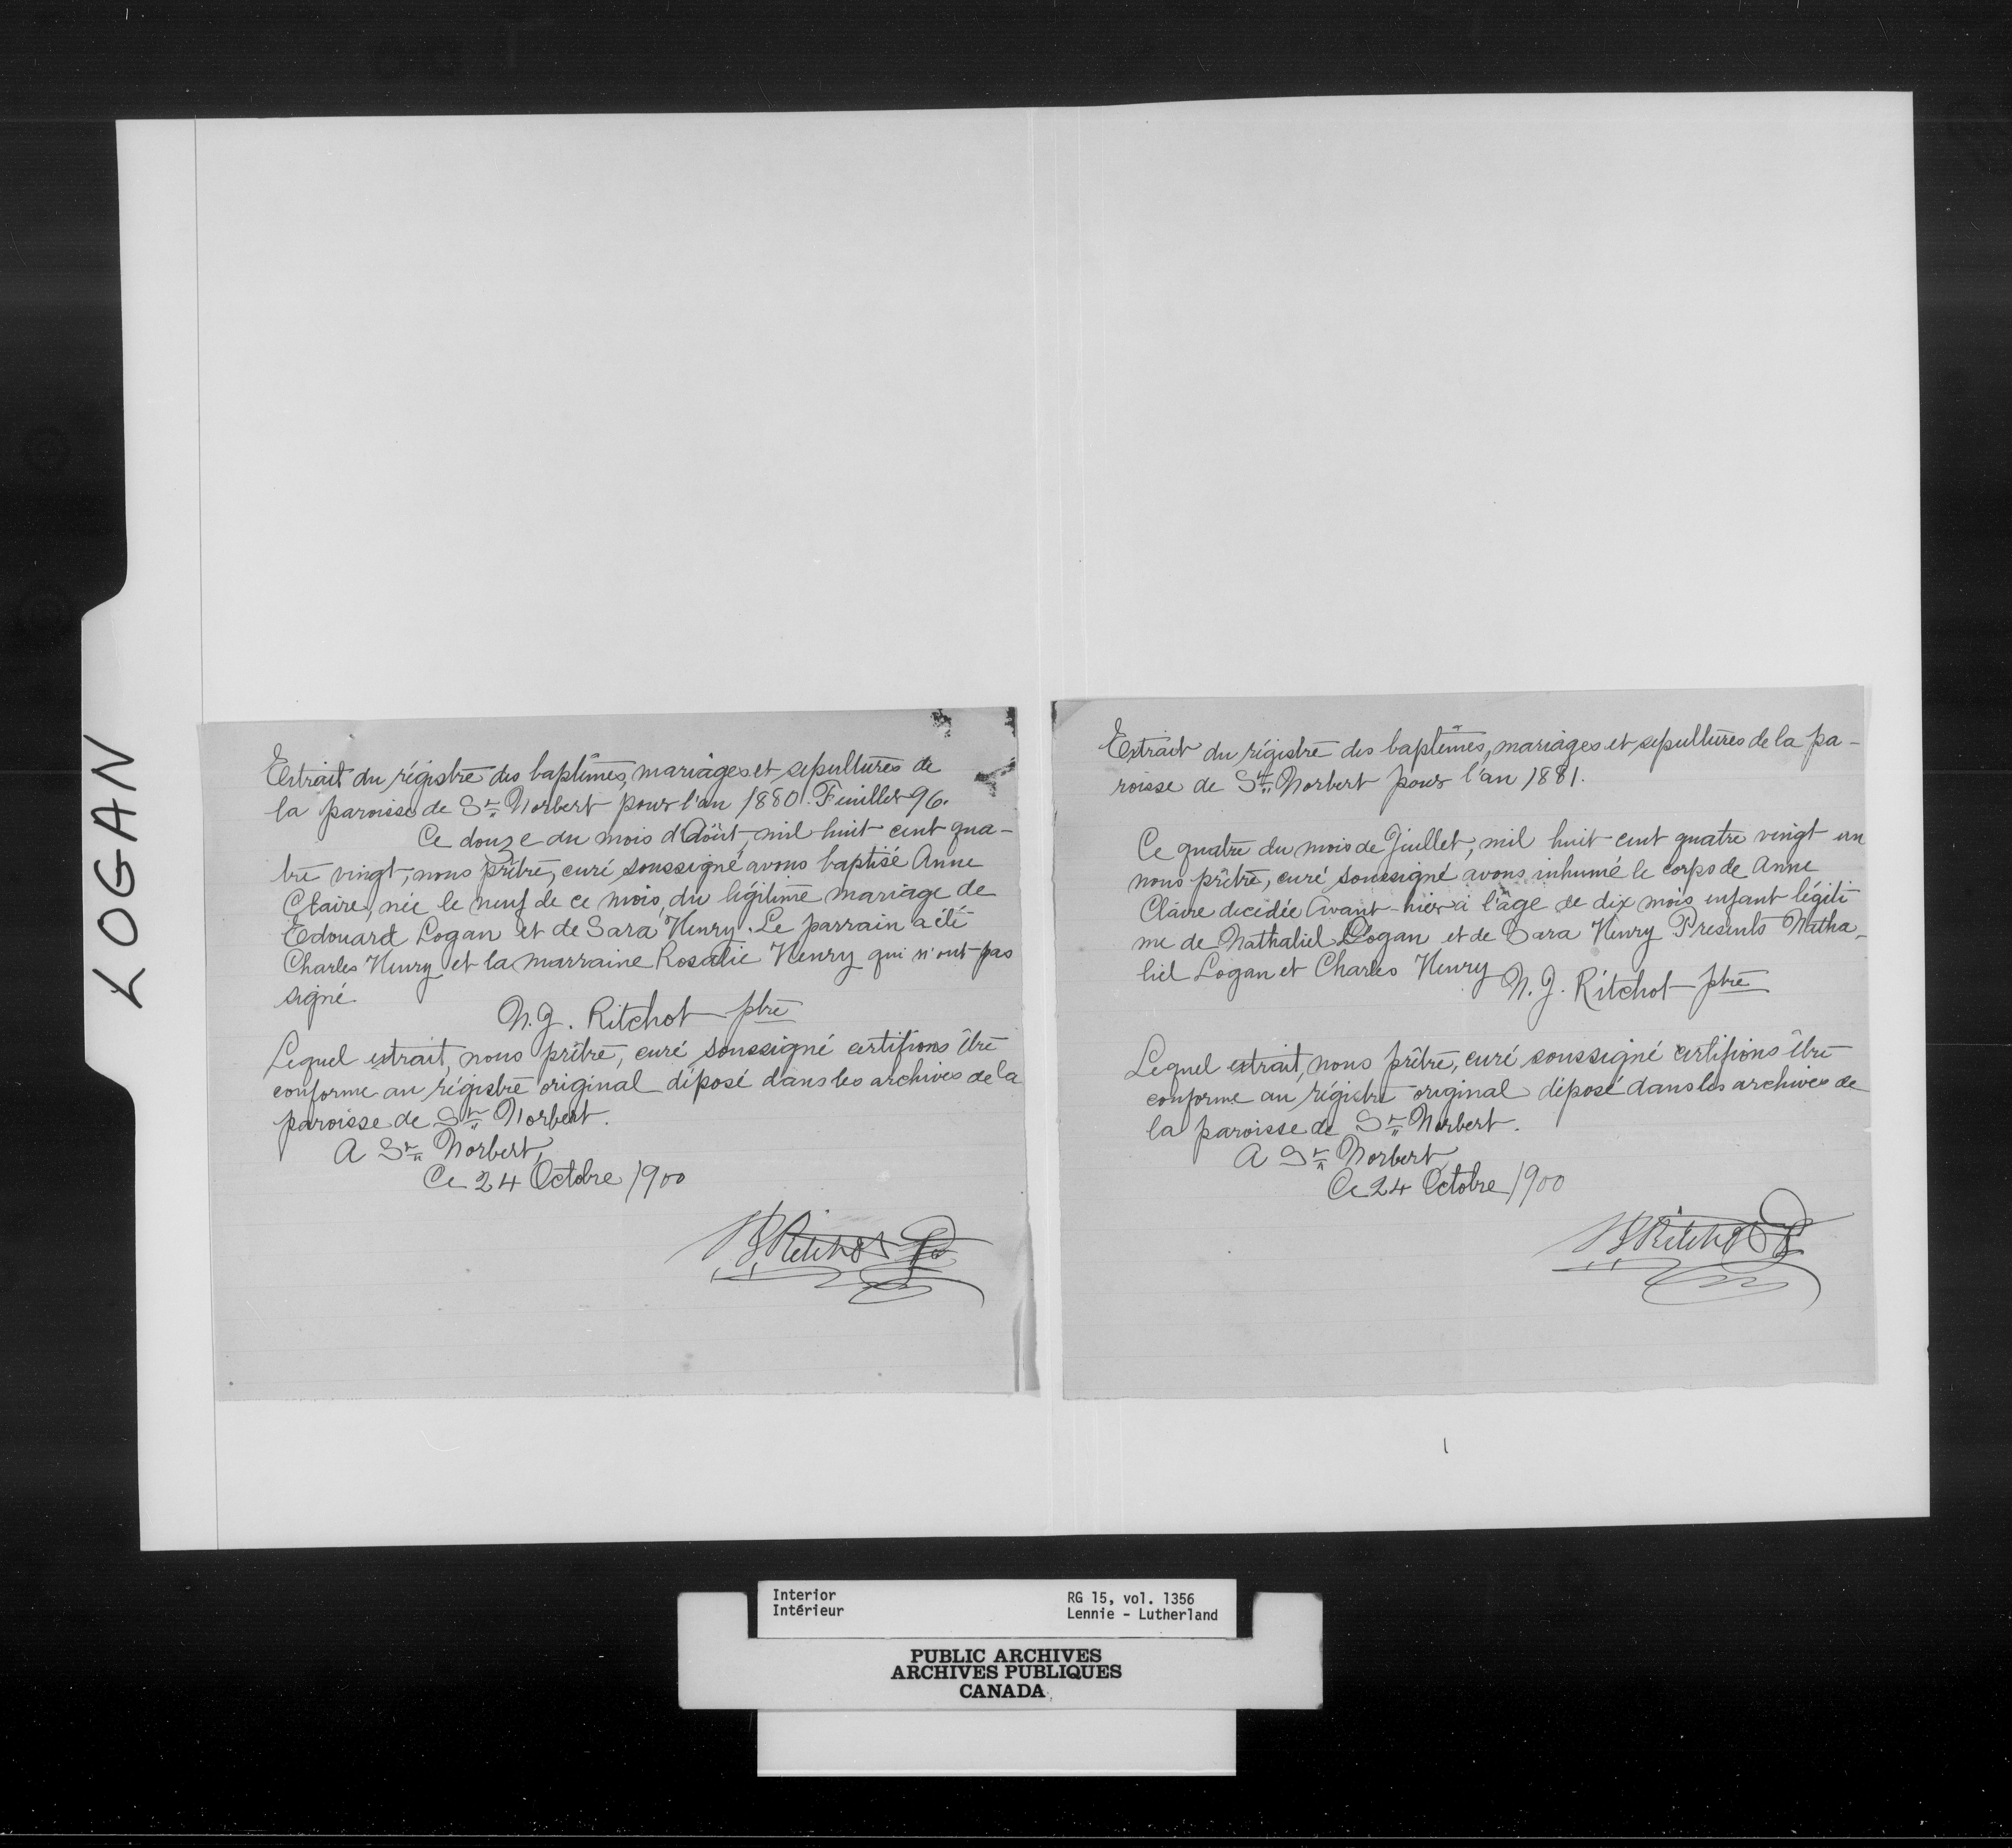 LOGAN
Extrait du régistre des baptêmes, mariages et sépultures de
la paroisse de St. Norbert pour l'an 1880. Feuillet 96.
Ce douze du mois d'Août, mil huit cent qua-
tre vingt, nous prêtre, curé soussigné avons baptisé Anne
Claire, née le neuf de ce mois, du légitime mariage de
Edouard Logan et de Sara Henry. Le parrain a été
Charles Henry et la marraine Rosalie Henry qui n'ont pas
signé
N.J. Ritchot ptre
Lequel extrait, nous prêtre, curé soussigné certifions être
conforme au régistre original déposé dans les archives de la
paroisse de St. Norbert.
A St. Norbert,
Ce 24 Octobre 1900
NJ Ritchot Ptr
Extrait du régistre des baptêmes, mariages et sépultures de la pa-
roisse de St. Norbert pour l'an 1881.
Ce quatre du mois de Juillet, mil huit cent quatre vingt un
nous prêtre, curé soussigné avons inhumé le corps de Anne
Claire decidée Avant-hier à l'âge de dix mois enfant légiti
me de Nathaliel Logan et de Sara Henry Presents Natha-
liel Logan et Charles Henry
N. J. Ritchot ptre
Lequel extrait, nous prêtre, curé soussigné certifions être
conforme au régistre original déposé dans les archives de
la paroisse de St. Norbert.
A St. Norbert
Ce 24 Octobre 1900
NJ Ritchot Ptr
Interior
Intérieur
RG 15, vol. 1356
Lennie - Lutherland
PUBLIC ARCHIVES
ARCHIVES PUBLIQUES
CANADA